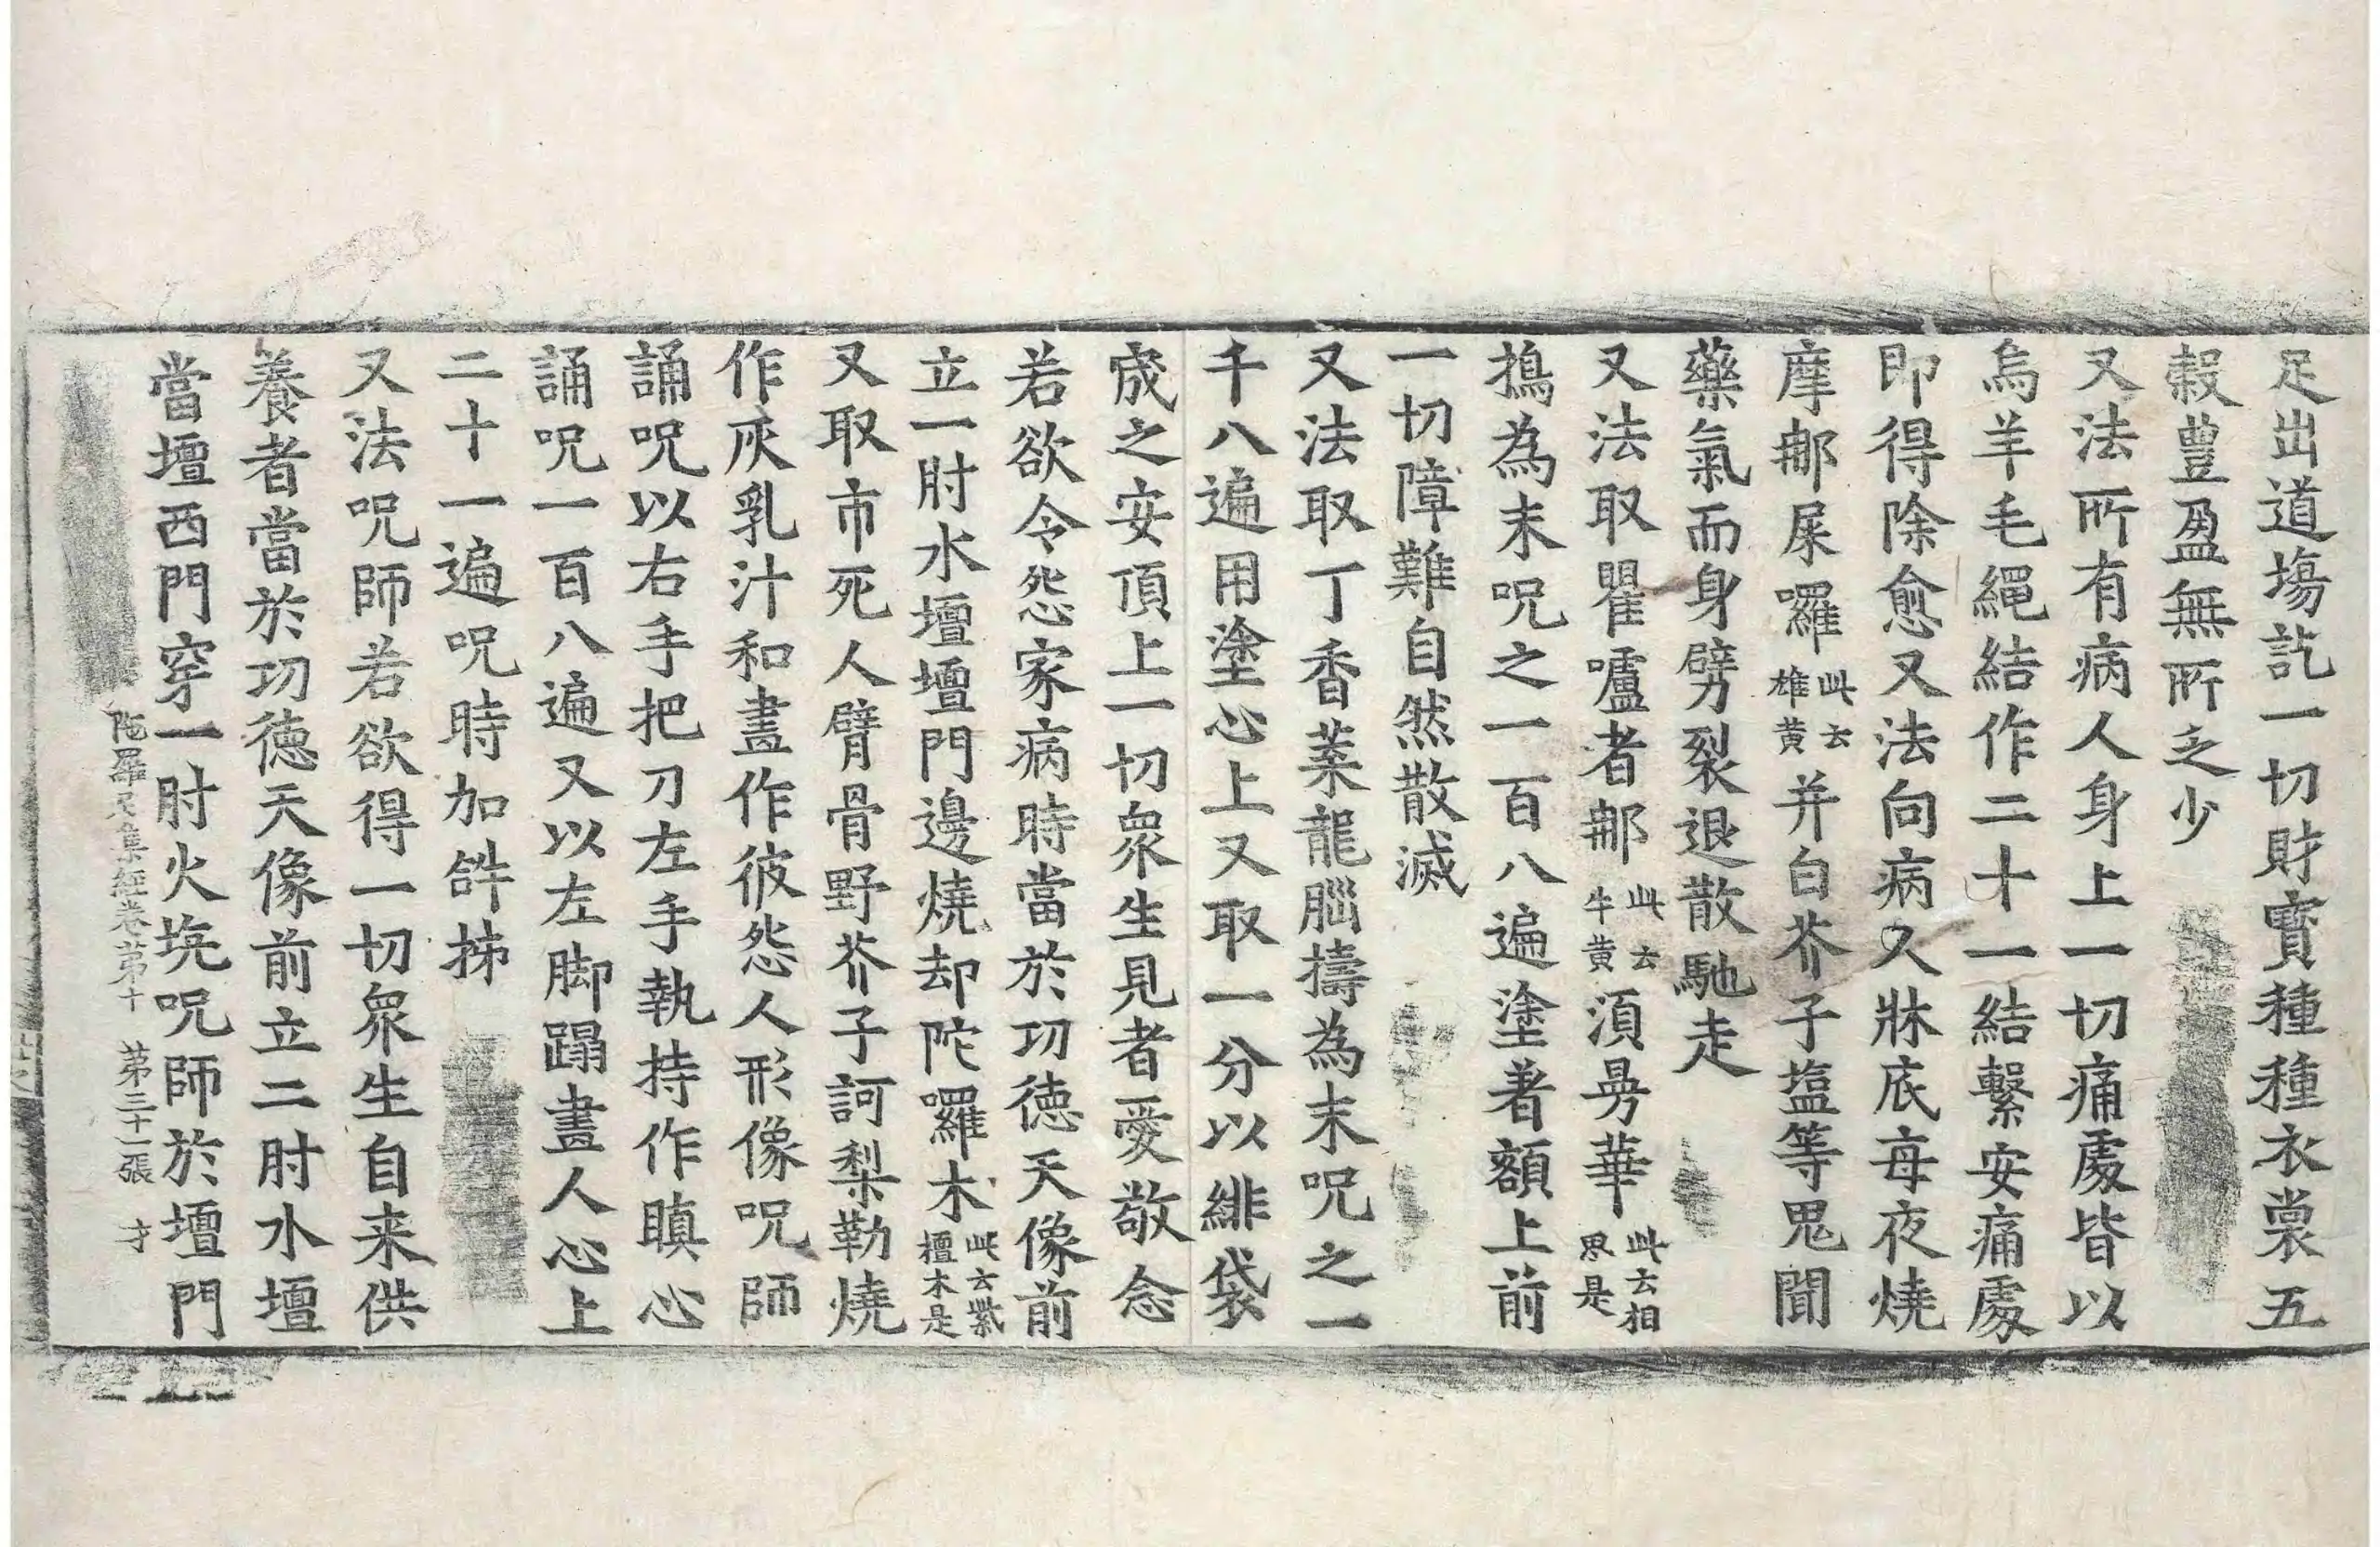 足出道場訖一切財寶種種衣裳五
穀豊盈無所乏少
又法所有病人身上一切痛處皆以
烏羊毛繩結作二十一結繫安痛處
即得除愈又法向病人牀底每夜燒
摩那屎囉此云雄黄并白芥子塩等鬼聞
藥氣而身劈裂退散馳走
又法取瞿嚧者那此云牛黄須㝵華此云相思是
擣為末呪之一百八遍塗著額上前
一切障難自然散滅
又法取丁香葉龍腦擣為末呪之一
千八遍用塗心上又取一分以緋袋
成之安頂上一切衆生見者愛敬念
若欲令怨家病時當於功徳天像前
立一肘水壇壇門邊燒却陀囉木此云紫檀木是
又取市死人臂骨野芥子訶梨勒燒
作灰乳汁和畫作彼怨人形像呪師
誦呪以右手把刀左手執持作瞋心
誦呪一百八遍又以左脚蹋畫人心上
二十一遍呪時加𤙖柹
又法呪師若欲得一切衆生自来供
養者當於功徳天像前立二肘水壇
當壇西門穿一肘火坑呪師於壇門
陁羅尼集經卷第十 第三十一張 才